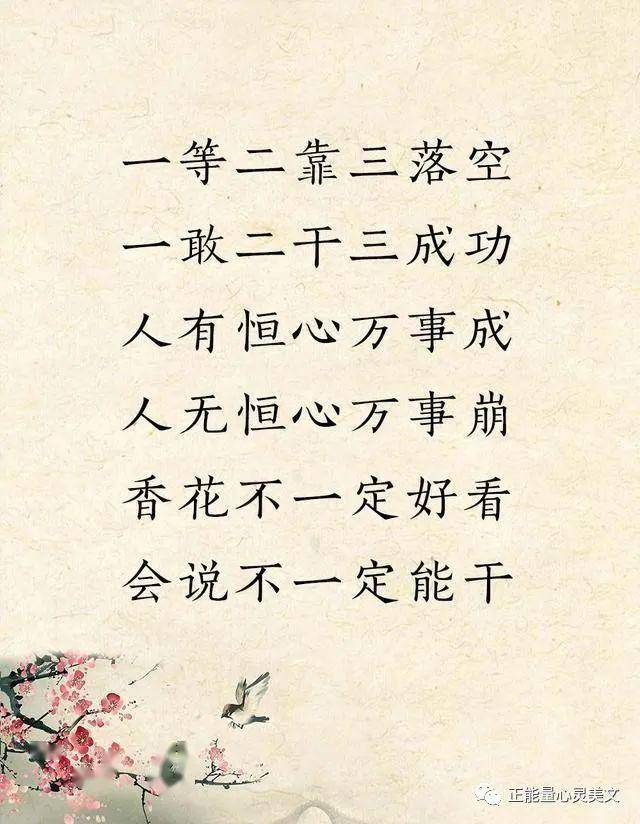 一等二靠三落空
一敢二干三成功
人有恒心万事成
人无恒心万事崩
香花不一定好看
会说不一定能干
正能量心灵美文